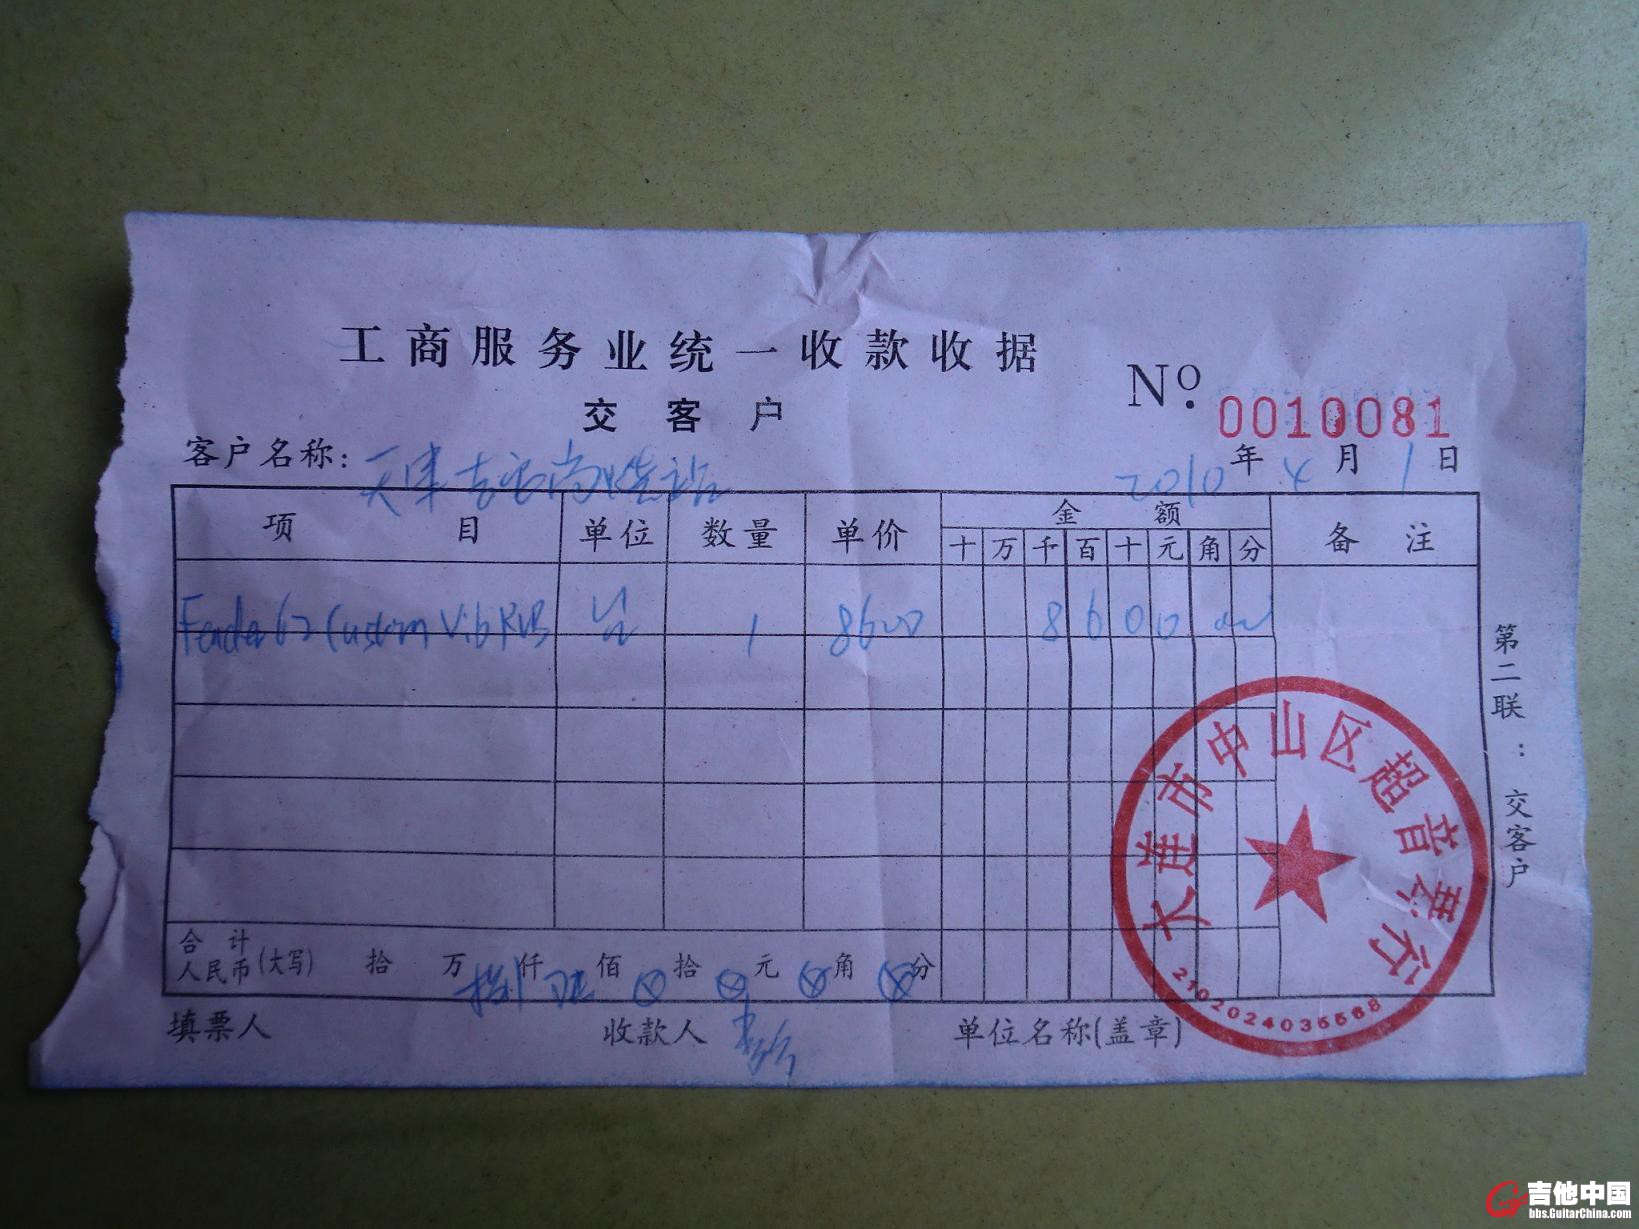 工商服务业统一收款收据
交客户
No. 0010081
客户名称: 天津
2010年4月1日
项目 单位 数量 单价 金额 备注
十万千百十元角分
Fender 62 Custom Vib RVB 台 1 8600 8600
第二联：交客户
合计人民币(大写) 拾 万捌仟陆佰⊗拾⊗元⊗角⊗分
填票人 收款人 单位名称(盖章)
大连市中山区超音琴行
吉他中国
bbs.GuitarChina.com